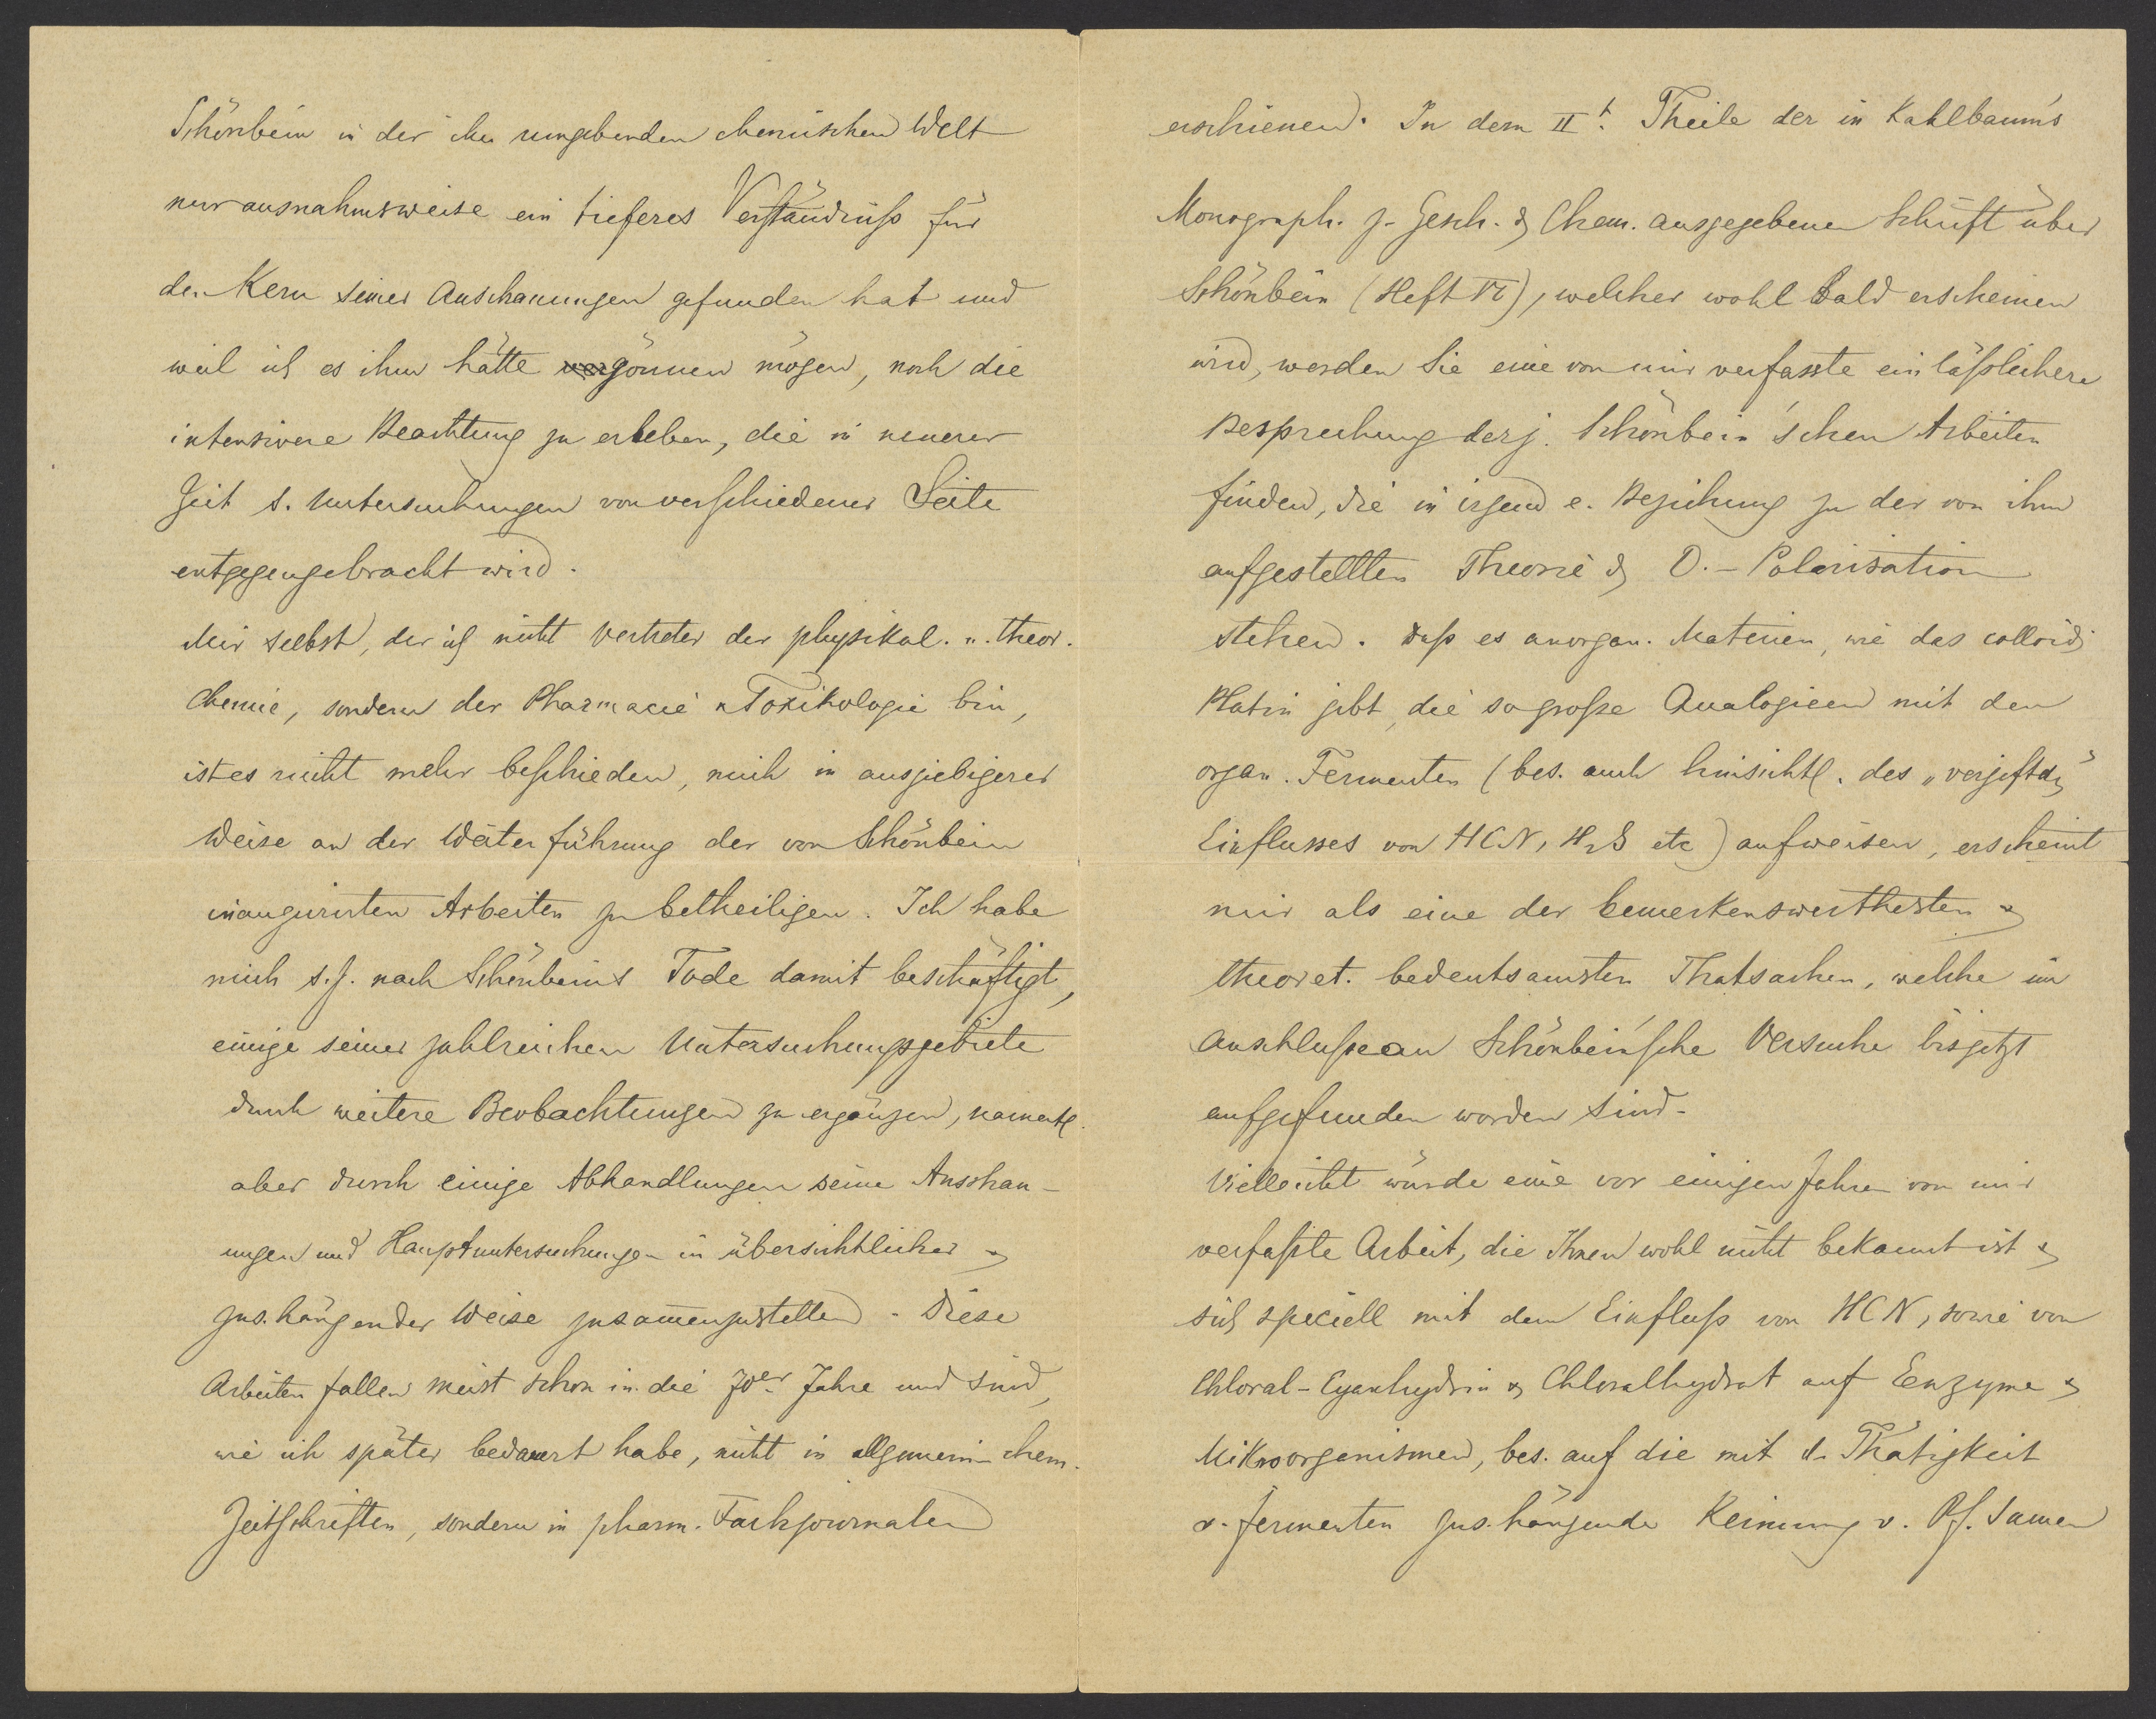 Schönbein in der ihn umgebenden chemischen Welt
nur ausnahmsweise ein tieferes Verständniß für
den Kern seiner Anschauungen gefunden hat und
weil ich es ihm hätte gönnen mögen, noch die
intensivere Beachtung zu erleben, die in neuerer
Zeit s. Untersuchungen von verschiedener Seite
entgegengebracht wird.
Mir selbst, der ich nicht Vertreter der physikal. u. theor.
Chemie, sondern der Pharmacie u Toxikologie bin,
ist es nicht mehr beschieden, mich in ausgiebigerer
Weise an der Weiterführung der von Schönbein
inaugurirten Arbeiten zu betheiligen. Ich habe
mich s. Z. nach Schönbein's Tode damit beschäftigt,
einige seiner zahlreichen Untersuchungsgebiete
durch weitere Beobachtungen zu ergänzen, namentl.
aber durch einige Abhandlungen seine Anschau-
ungen und Hauptuntersuchungen in übersichtlicher &
zus.hängender Weise zusammenzustellen. Diese
Arbeiten fallen meist schon in die 70er Jahre und sind,
wie ich später bedauert habe, nicht in allgemein-chem.
Zeitschriften, sondern in pharm. Fachjournalen
erschienen. In dem IIt. Theile der in Kahlbaum's
Monograph. z. Gesch. d. Chem. ausgegebenen Schrift über
Schönbein (Heft VI), welcher wohl bald erscheinen
wird, werden Sie eine von mir verfasste einläßlichere
Besprechung derj. Schönbein'schen Arbeiten
finden, die in irgend e. Beziehung zu der von ihm
aufgestellten Theorie d. O.-Polarisation
stehen. Daß es anorgan. Materien, wie das colloid.
Platin gibt, die so große Analogieen mit den
organ. Fermenten (bes. auch hinsichtl. des „vergiftdn"
Einflusses von HCN, H2S etc) aufweisen, erscheint
mir als eine der bemerkenswerthesten &
theoret. bedeutsamsten Thatsachen, welche im
Anschluße an Schönbein'sche Versuche bis jetzt
aufgefunden worden sind.
Vielleicht würde eine vor einigen Jahren von mir
verfaßte Arbeit, die Ihnen wohl nicht bekannt ist &
sich speciell mit dem Einfluß von HCN, sowie von
Chloral-Cyanhydrin & Chloralhydrat auf Enzyme &
Mikroorganismen, bes. auf die mit d. Thätigkeit
v. Fermenten zus.hängende Keimung v. Pf. Samen